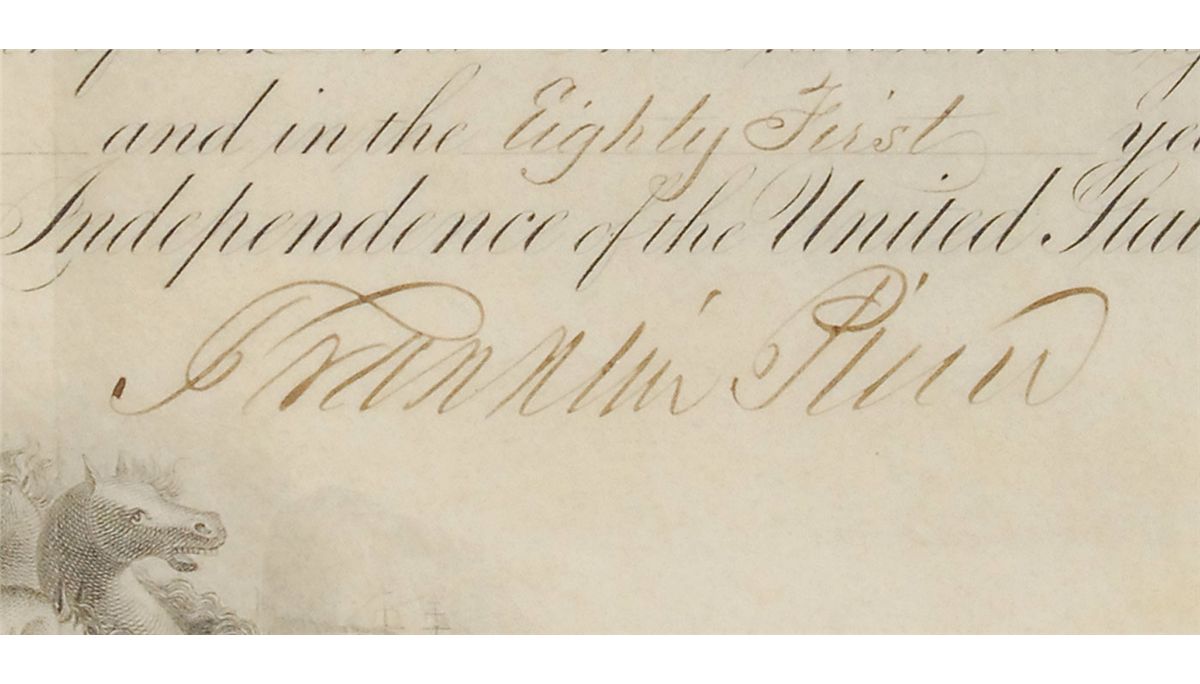 and in the Eighty First
Independence of the United
Franklin Pierce